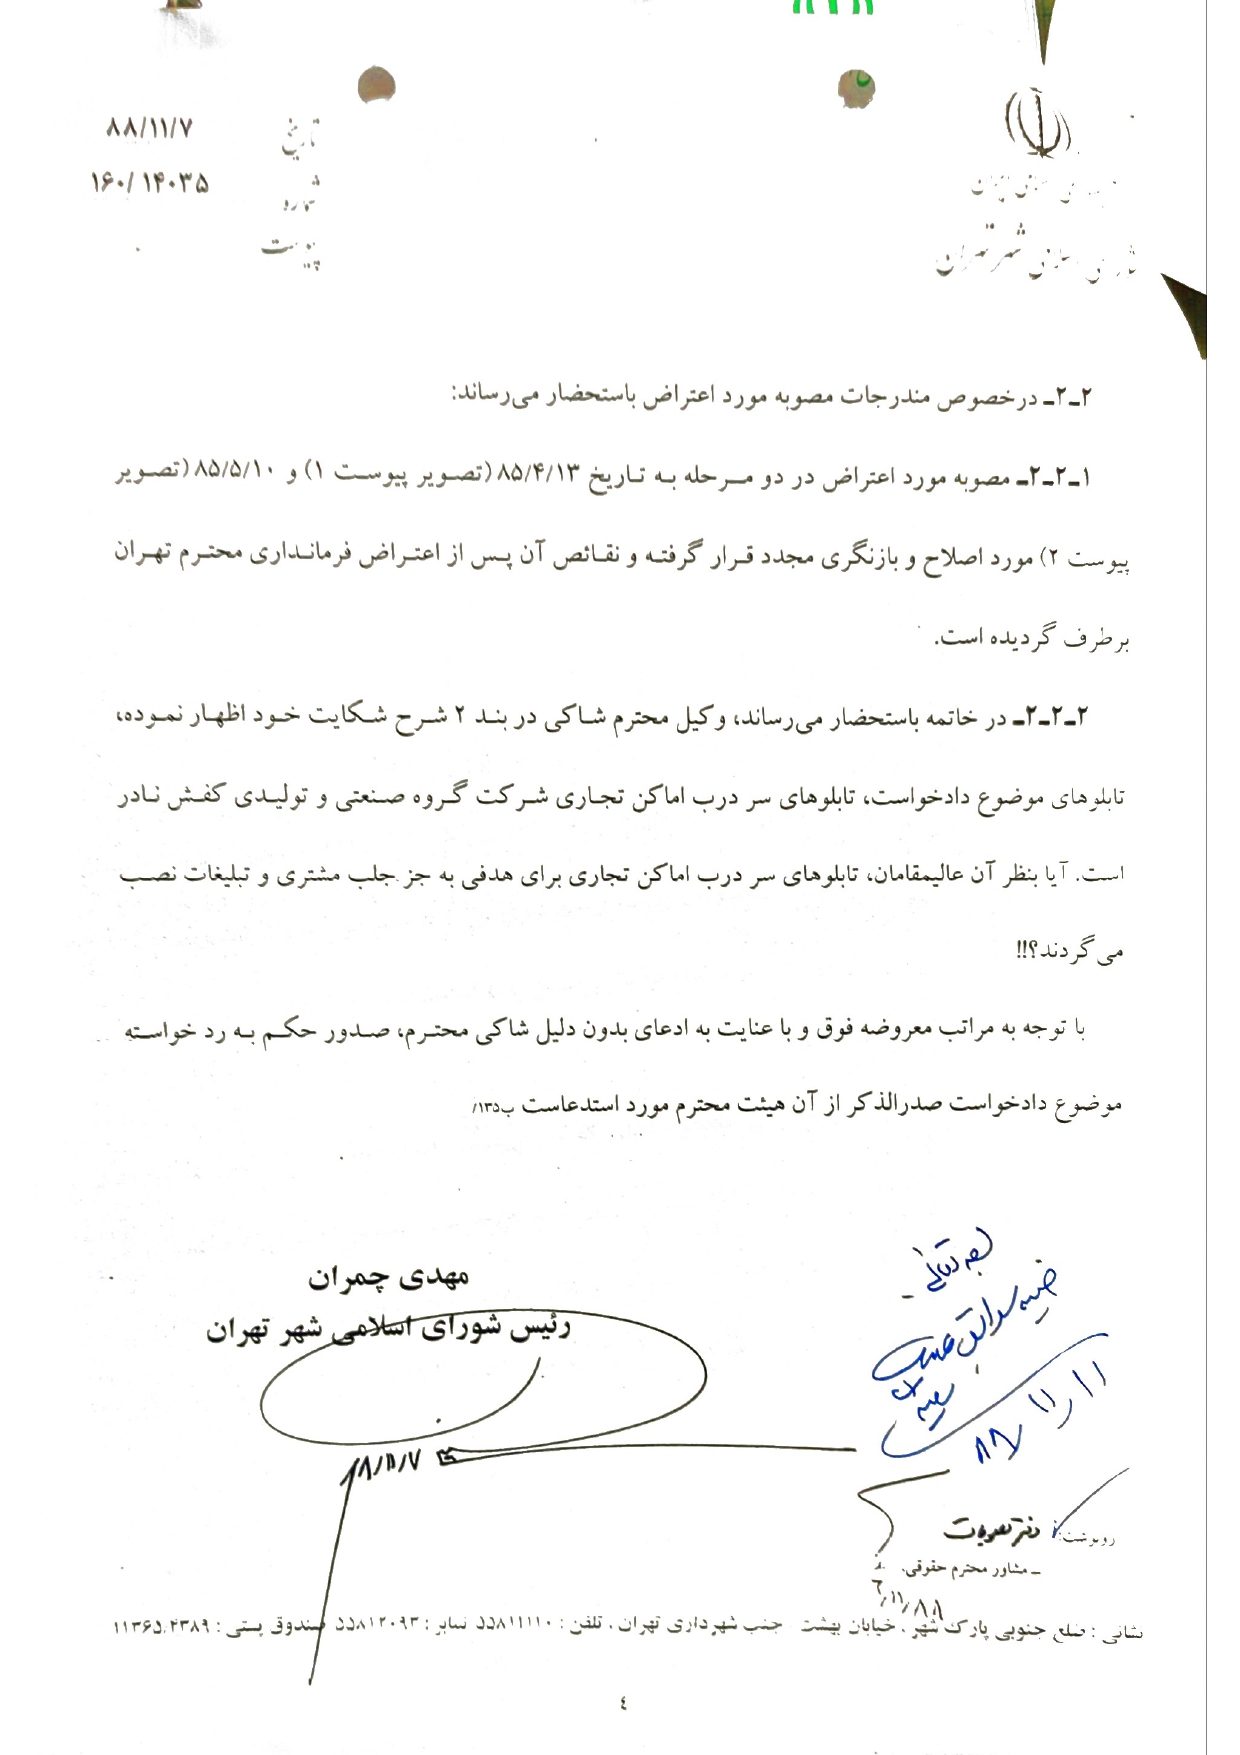 تاریخ ۸۸/۱۱/۷
شماره ۱۶۰/۱۴۰۳۵
پیوست
شورای اسلامی شهر تهران
۲ـ۲ـ درخصوص مندرجات مصوبه مورد اعتراض باستحضار می‌رساند:
۲ـ۲ـ۱ـ مصوبه مورد اعتراض در دو مرحله به تاریخ ۸۵/۴/۱۳ (تصویر پیوست ۱) و ۸۵/۵/۱۰ (تصویر
پیوست ۲) مورد اصلاح و بازنگری مجدد قرار گرفته و نقائص آن پس از اعتراض فرمانداری محترم تهران
برطرف گردیده است.
۲ـ۲ـ۲ـ در خاتمه باستحضار می‌رساند، وکیل محترم شاکی در بند ۲ شرح شکایت خود اظهار نموده،
تابلوهای موضوع دادخواست، تابلوهای سر درب اماکن تجاری شرکت گروه صنعتی و تولیدی کفش نادر
است. آیا بنظر آن عالیمقامان، تابلوهای سر درب اماکن تجاری برای هدفی به جز جلب مشتری و تبلیغات نصب
می‌گردند؟!!!
با توجه به مراتب معروضه فوق و با عنایت به ادعای بدون دلیل شاکی محترم، صدور حکم به رد خواسته
موضوع دادخواست صدرالذکر از آن هیئت محترم مورد استدعاست ب۱۳۵/
مهدی چمران
رئیس شورای اسلامی شهر تهران
۸۸/۱۱/۷
بسمه تعالی
۸۸/۱۱/۱۱
رونوشت:
ـ مشاور محترم حقوقی.
نشانی : ضلع جنوبی پارک شهر ، خیابان بهشت جنب شهرداری تهران ، تلفن : ۵۵۸۱۱۱۱۰ نمابر : ۵۵۸۱۲۰۹۳ صندوق پستی : ۱۱۳۶۵.۴۳۸۹
٤